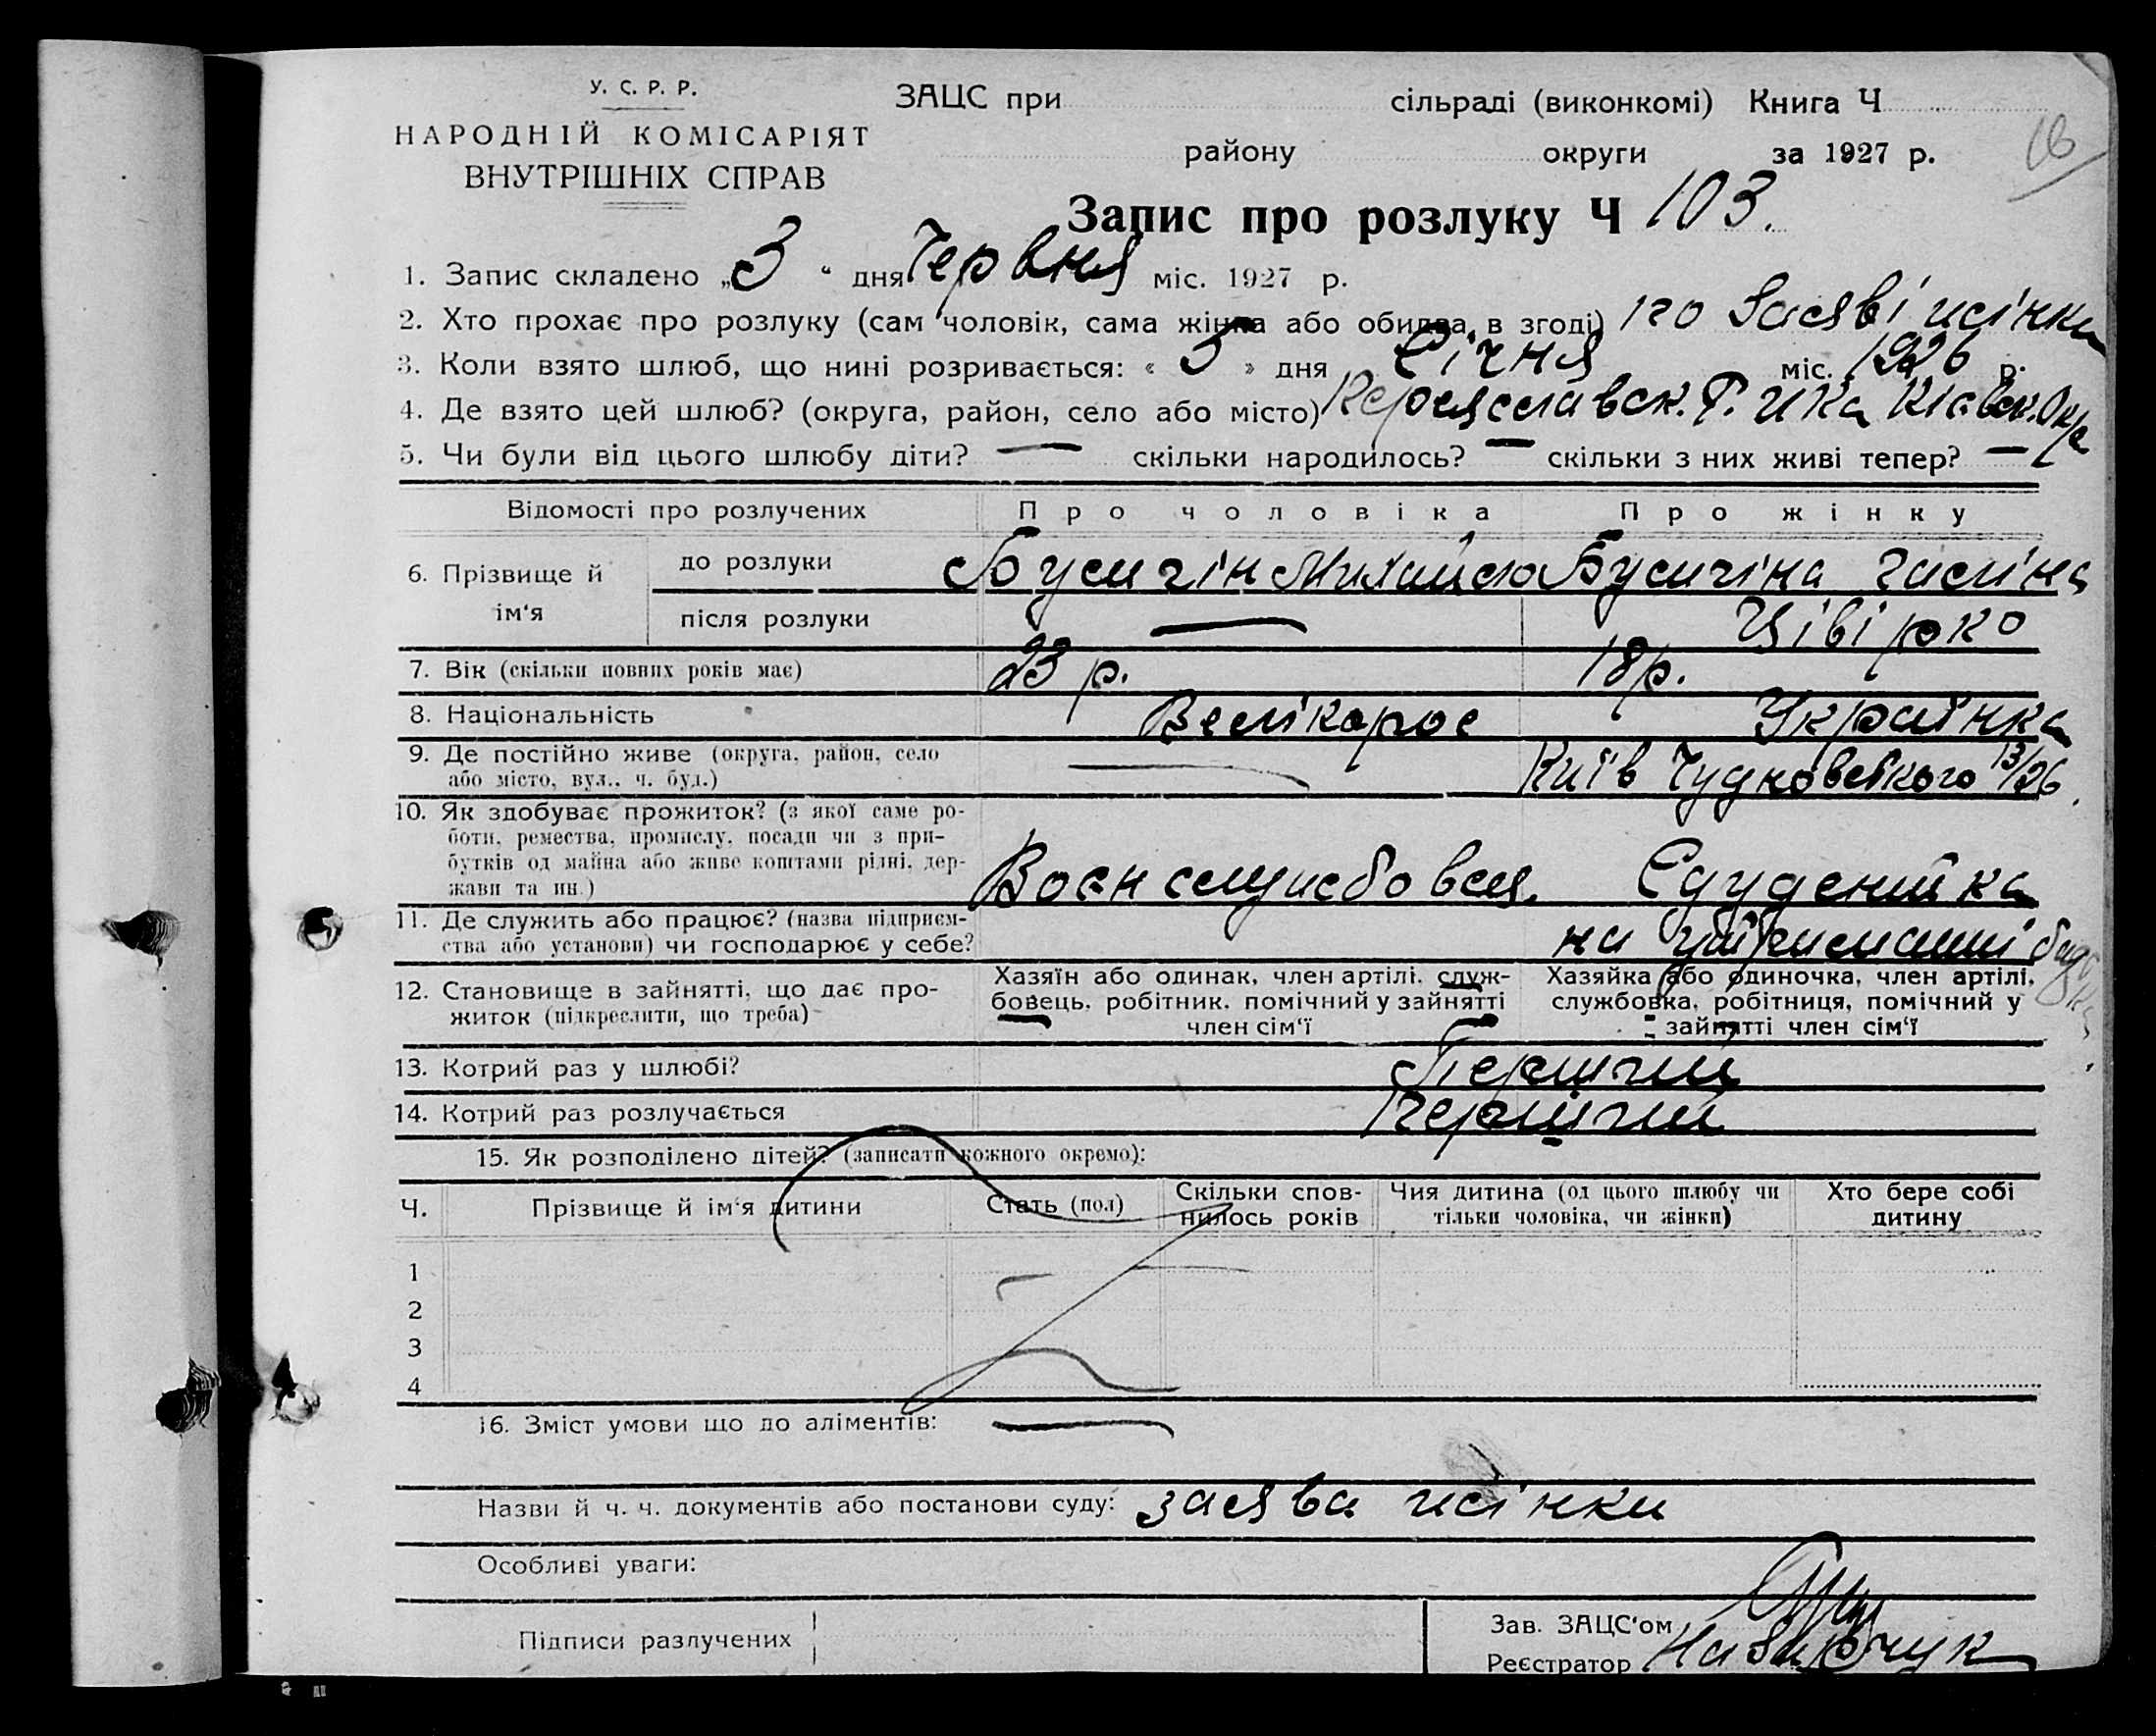 У. С. Р. Р.
НАРОДНІЙ КОМІСАРІЯТ
ВНУТРІШНІХ СПРАВ
ЗАЦС при сільраді (виконкомі) Книга Ч
району округи за 1927 р.
16
Запис про розлуку Ч 103.
1. Запис складено „3“ дня Червня міс. 1927 р.
2. Хто прохає про розлуку (сам чоловік, сама жінка або обидва в згоді) по Заяві жінки
3. Коли взято шлюб, що нині розривається: « 5 » дня Січня міс. 1926 р.
4. Де взято цей шлюб? (округа, район, село або місто) Переяславск. Р.
5. Чи були від цього шлюбу діти? — скільки народилось? — скільки з них живі тепер? —
Відомості про розлучених Про чоловіка Про жінку
6. Прізвище й ім‘я до розлуки Бусигін Михайло Бусигіна Галіна
після розлуки — Цівірко
7. Вік (скільки повних років має) 23 р. 18 р.
8. Національність Велікорос Українка
9. Де постійно живе (округа, район, село — Київ Чудновського 13/26.
або місто, вул.. ч. буд.)
10. Як здобуває прожиток? (з якої саме ро-
боти, ремества, промислу, посади чи з при-
бутків од майна або живе коштами рідні, дер-
жави та ин.) Воєнслужбовец.
11. Де служить або працює? (назва підприєм-
ства або установи) чи господарює у себе? на
12. Становище в зайнятті, що дає про-
житок (підкреслити, що треба)
Хазяїн або одинак, член артілі, служ-
бовець, робітник, помічний у зайнятті
член сім‘ї
Хазяйка або одиночка, член артілі,
службовка, робітниця, помічний у
зайнятті член сім‘ї
13. Котрий раз у шлюбі? Перший
14. Котрий раз розлучається перший
15. Як розподілено дітей? (записати кожного окремо):
Ч. Прізвище й ім‘я дитини Стать (пол) Скільки спов-
нилось років Чия дитина (од цього шлюбу чи
тільки чоловіка, чи жінки) Хто бере собі
дитину
1
2
3
4
16. Зміст умови що до аліментів: —
Назви й ч. ч. документів або постанови суду: заява жінки
Особливі уваги:
Підписи разлучених
Зав. ЗАЦС‘ом
Реєстратор